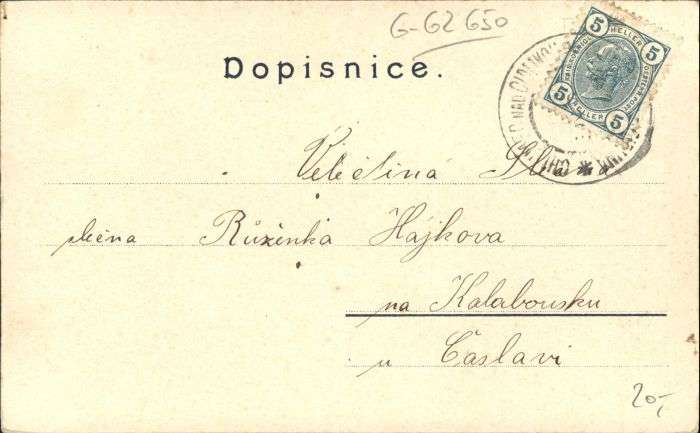 G-G2 650
Dopisnice.
5 HELLER 5
5 HELLER 5
NAD
Velectěná
slečna Růženka Hájkova
na Kalabousku
u Čáslavi
20,-